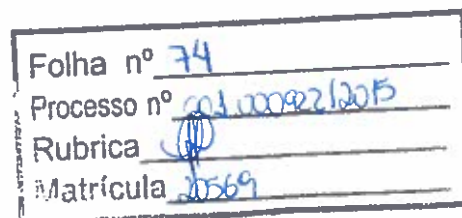 Folha nº 74
Processo nº 001.000922/2015
Rubrica
Matrícula 20569